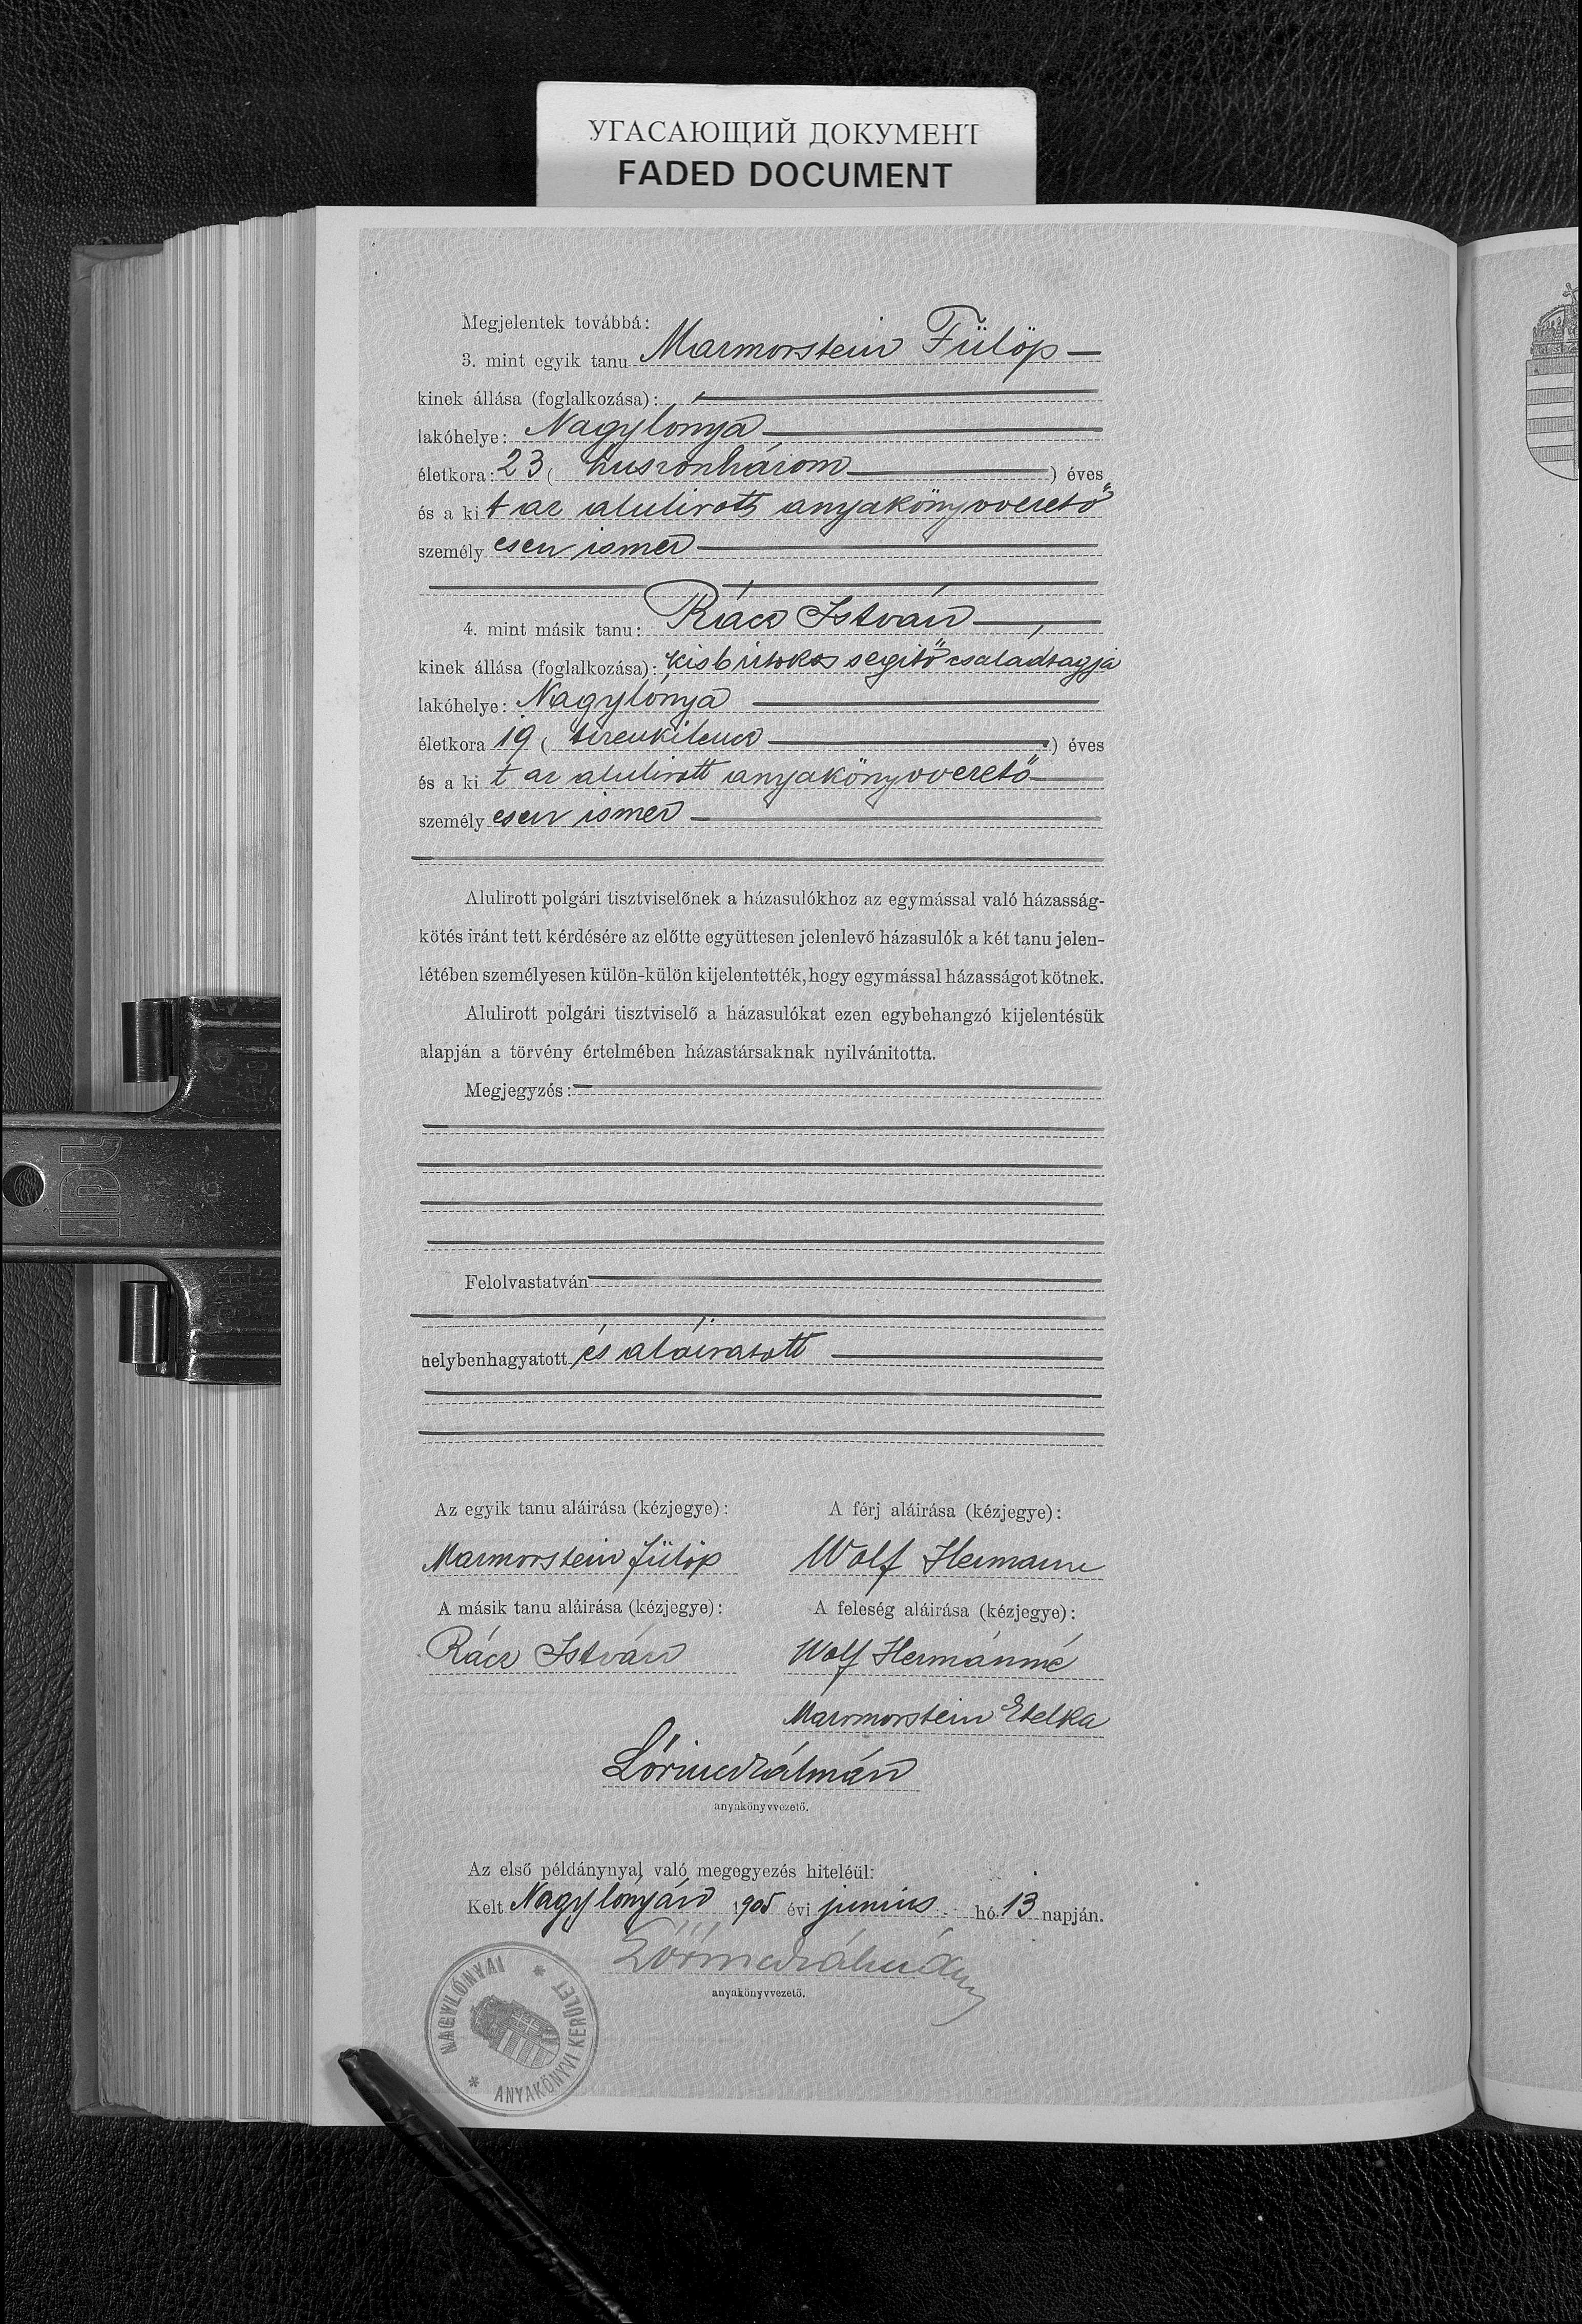 УГАСАЮЩИЙ ДОКУМЕНТ
FADED DOCUMENT
Megjelentek továbbá:
3. mint egyik tanu Marmorstein Fülöp
kinek állása (foglalkozása):
lakóhelye: Nagylonya
életkora: 23 ( huszonhárom ) éves
és a ki t az alulirott anyakönyvvezető
személy esen ismer
4. mint másik tanu: Rácz István
kinek állása (foglalkozása): kisbirtokos segitő családtagja
lakóhelye: Nagylónya
életkora 19 ( tizenkilencz ) éves
és a ki t az alulirott anyakönyvvezető
személy esen ismer
Alulirott polgári tisztviselőnek a házasulókhoz az egymással való házasság-
kötés iránt tett kérdésére az előtte együttesen jelenlevő házasulók a két tanu jelen-
létében személyesen külön-külön kijelentették, hogy egymással házasságot kötnek.
Alulirott polgári tisztviselő a házasulókat ezen egybehangzó kijelentésük
alapján a törvény értelmében házastársaknak nyilvánitotta.
Megjegyzés:
Felolvastatván
helybenhagyatott és aláiratott
Az egyik tanu aláirása (kézjegye): A férj aláirása (kézjegye):
Marmorstein Fülöp Wolf Hermann
A másik tanu aláirása (kézjegye): A feleség aláirása (kézjegye):
Rácz István Wolf Hermánné
Marmorstein Etelka
Lőrincz Kálmán
anyakönyvvezető.
Az első példánynyal való megegyezés hiteléül:
Kelt Nagylónyán 1905 évi junius hó 13 napján.
Lőrincz Kálmán
anyakönyvvezető.
NAGYLÓNYAI * ANYAKÖNYVI KERÜLET *